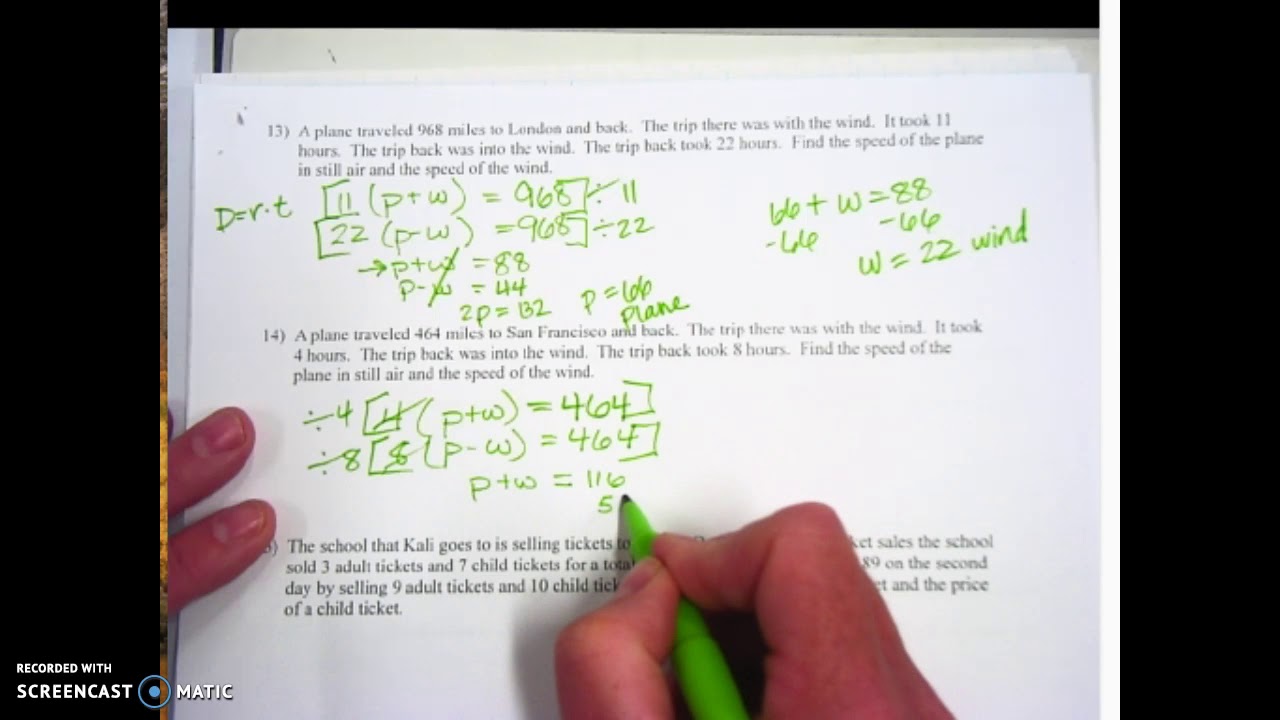 13) A plane traveled 968 miles to London and back. The trip there was with the wind. It took 11
hours. The trip back was into the wind. The trip back took 22 hours. Find the speed of the plane
in still air and the speed of the wind.
D=r·t [11 (p+w) = 968] ÷ 11
[22 (p-w) = 968] ÷ 22
→ p+w = 88
p-w = 44
2p = 132 p = 66
plane
66 + w = 88
-66 -66
w = 22 wind
14) A plane traveled 464 miles to San Francisco and back. The trip there was with the wind. It took
4 hours. The trip back was into the wind. The trip back took 8 hours. Find the speed of the
plane in still air and the speed of the wind.
÷4 [4 (p+w) = 464]
÷8 [8 (p-w) = 464]
p+w = 116
5
) The school that Kali goes to is selling tickets to ket sales the school
sold 3 adult tickets and 7 child tickets for a total 89 on the second
day by selling 9 adult tickets and 10 child tick et and the price
of a child ticket.
RECORDED WITH
SCREENCAST MATIC